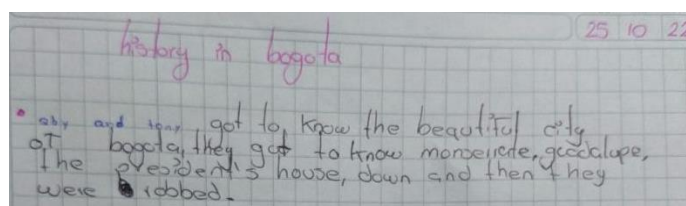 25 10 22
history in bogota
• aby and tony got to know the beautiful city
of bogota, they got to know monserrate, guadalupe,
the president's house, down and then they
were robbed.